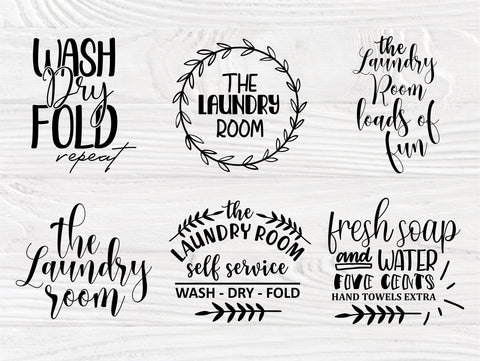 WASH
Dry
FOLD
repeat
THE
LAUNDRY
ROOM
the
Laundry
Room
loads of
fun
the
Laundry
room
the
LAUNDRY ROOM
self service
WASH - DRY - FOLD
fresh soap
and WATER
FIVE CENTS
HAND TOWELS EXTRA